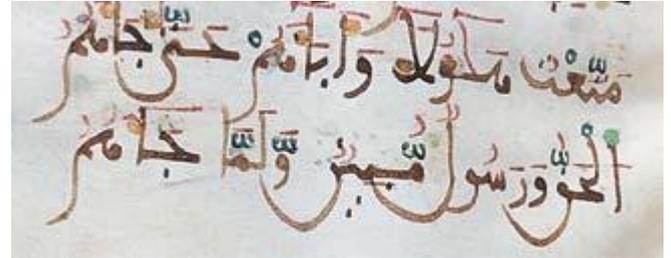 مَتَّعْتُ هَٰؤُلَاءِ وَءَابَاءَهُمْ حَتَّىٰ جَاءَهُمُ
الْحَقُّ وَرَسُولٌ مُّبِينٌ وَلَمَّا جَاءَهُمُ